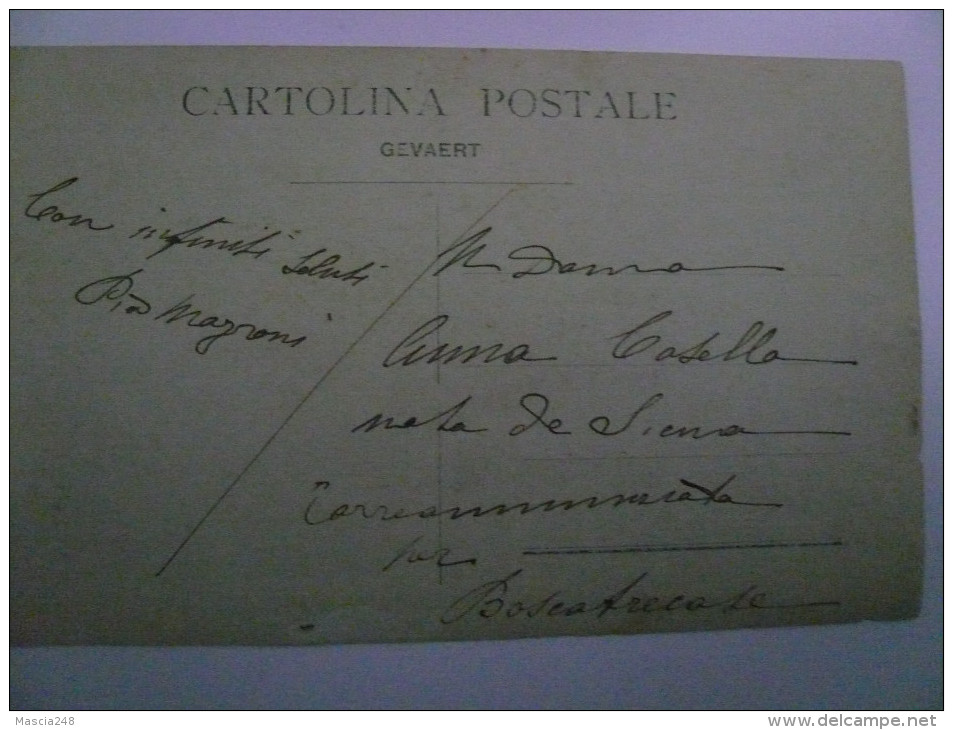 CARTOLINA POSTALE
GEVAERT
Con infiniti saluti
Pia Mazzoni
N. Donna
Anna Casella
nata de Siena
Torreannunziata
per
Boscotrecase
Mascia248
www.delcampe.net